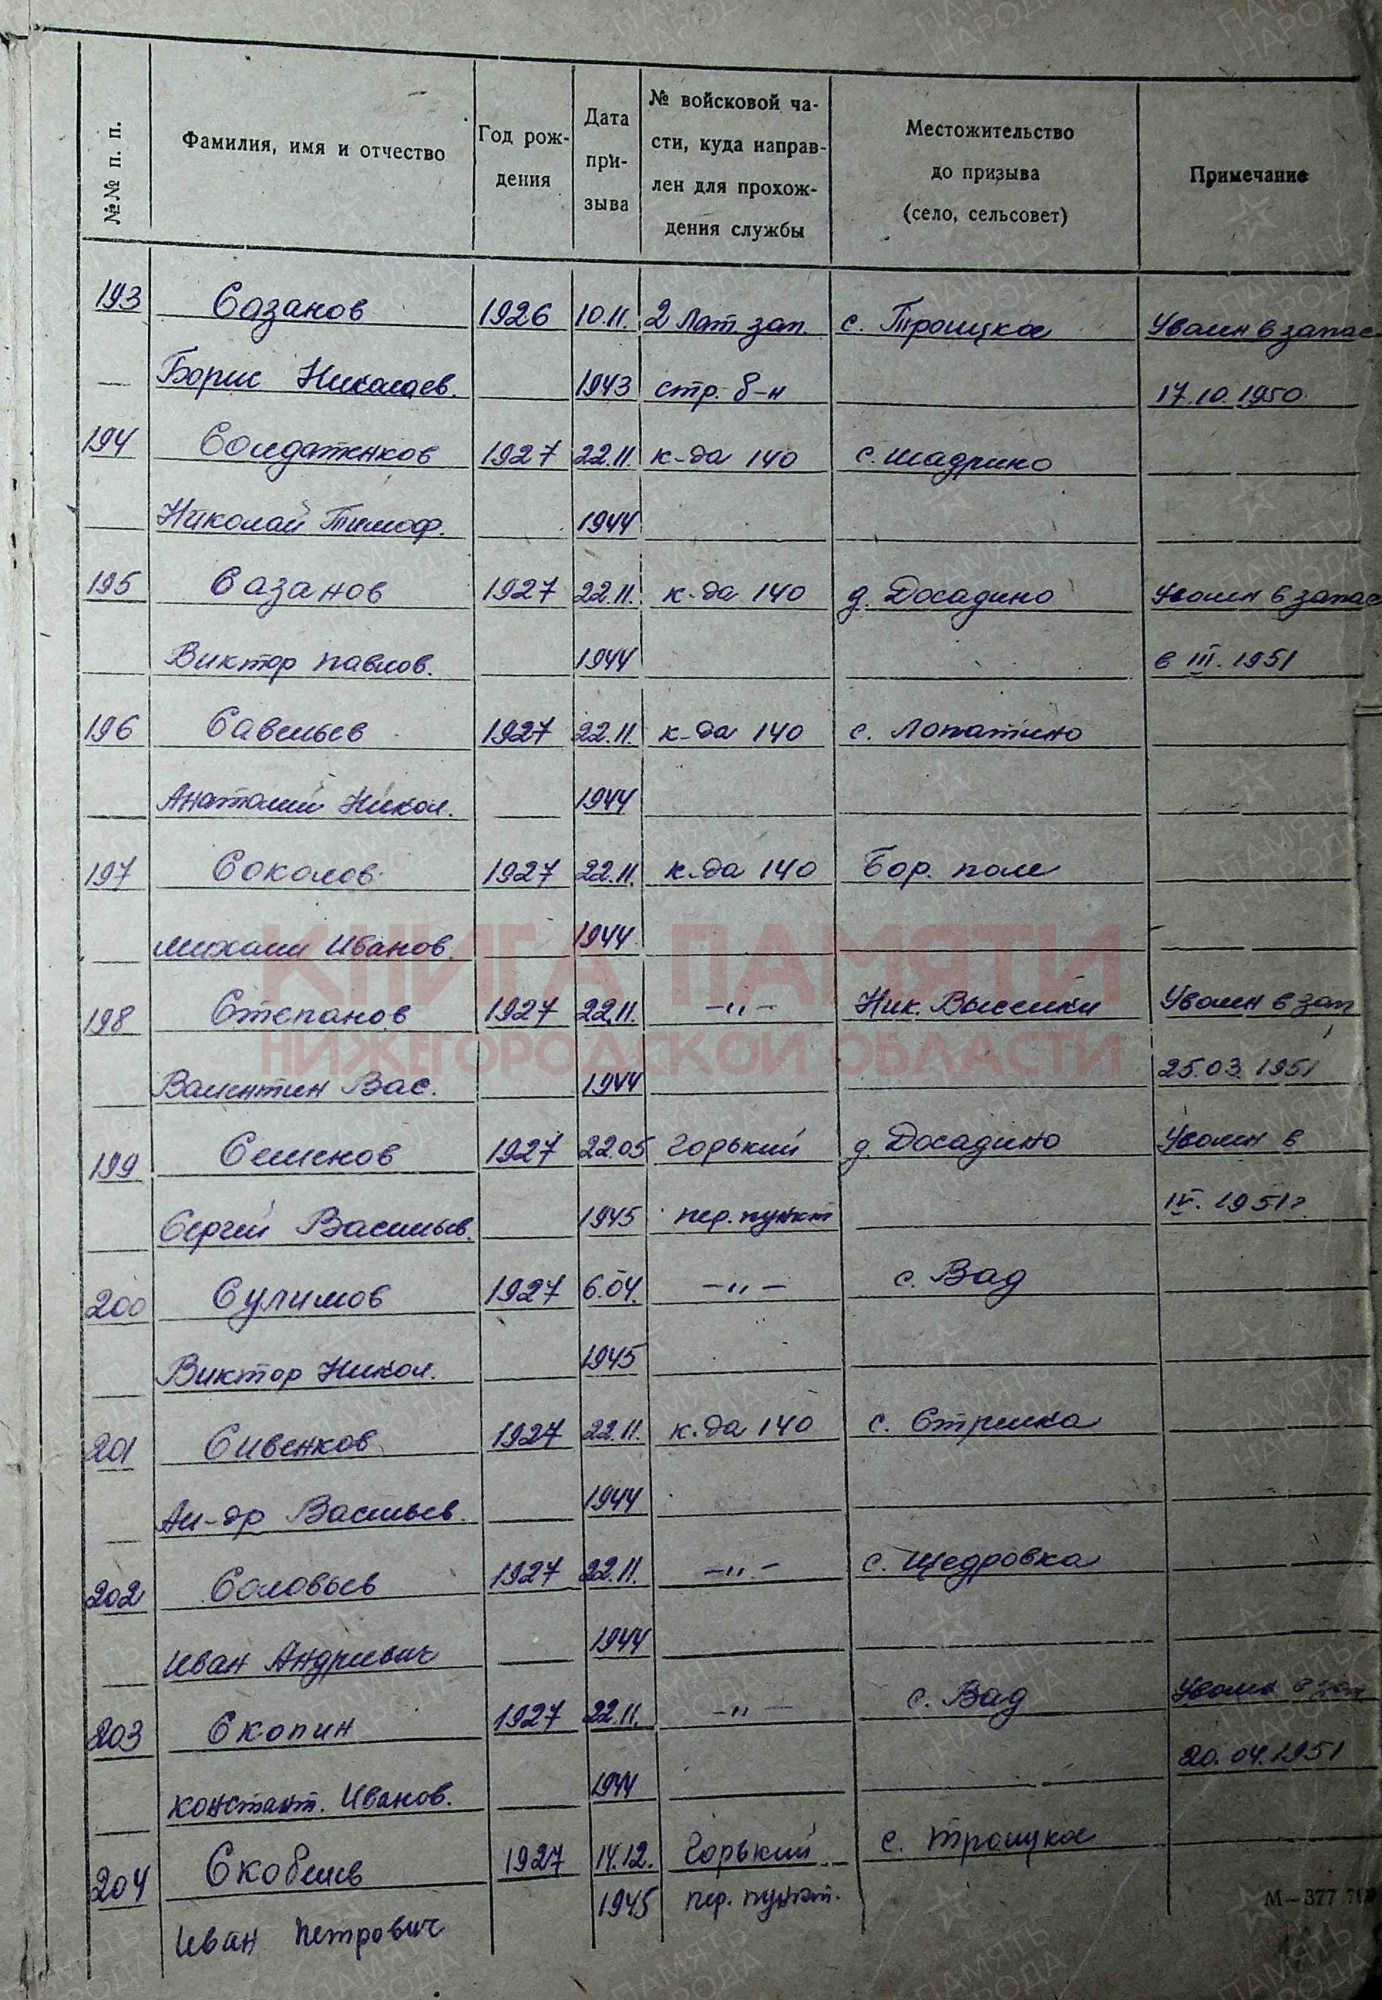 №№ п. п.
Фамилия, имя и отчество
Год рож-
дения
Дата
при-
зыва
№ войсковой ча-
сти, куда направ-
лен для прохож-
дения службы
Местожительство
до призыва
(село, сельсовет)
Примечание
193 Сазанов 1926 10.11. 2 Лат зап. с. Троицкое Уволен в запас
Борис Николаев. 1943 стр. б-н 17.10.1950.
194 Солдатенков 1927 22.11. к-да 140 с. Шадрино
Николай Тимоф. 1944
195 Сазанов 1927 22.11. к-да 140 д. Досадино Уволен в запас
Виктор Павлов. 1944 в III. 1951
196 Савельев 1927 22.11. к-да 140 с. Лопатино
Анатолий Никол. 1944
197 Соколов 1927 22.11. к-да 140 Бор. поле
Михаил Иванов. 1944
198 Степанов 1927 22.11. -"- Ник. Выселки Уволен в зап
Валентин Вас. 1944 25.03.1951
199 Семенов 1927 22.05 Горький д. Досадино Уволен в
Сергей Васильев. 1945 пер. пункт IV. 1951г
200 Сулимов 1927 6.04. -"- с. Вад
Виктор Никол. 1945
201 Сивенков 1927 22.11. к-да 140 с. Стрелка
Ал-др Васильев. 1944
202 Соловьев 1927 22.11. -"- с. Щедровка
Иван Андреевич 1944
203 Скопин 1927 22.11. -"- с. Вад Уволен в зап
Констант. Иванов. 1944 20.04.1951
204 Скобелев 1927 14.12. Горький с. Троицкое
Иван Петрович 1945 пер. пункт.
М—377
КНИГА ПАМЯТИ
НИЖЕГОРОДСКОЙ ОБЛАСТИ
ПАМЯТЬ
НАРОДА